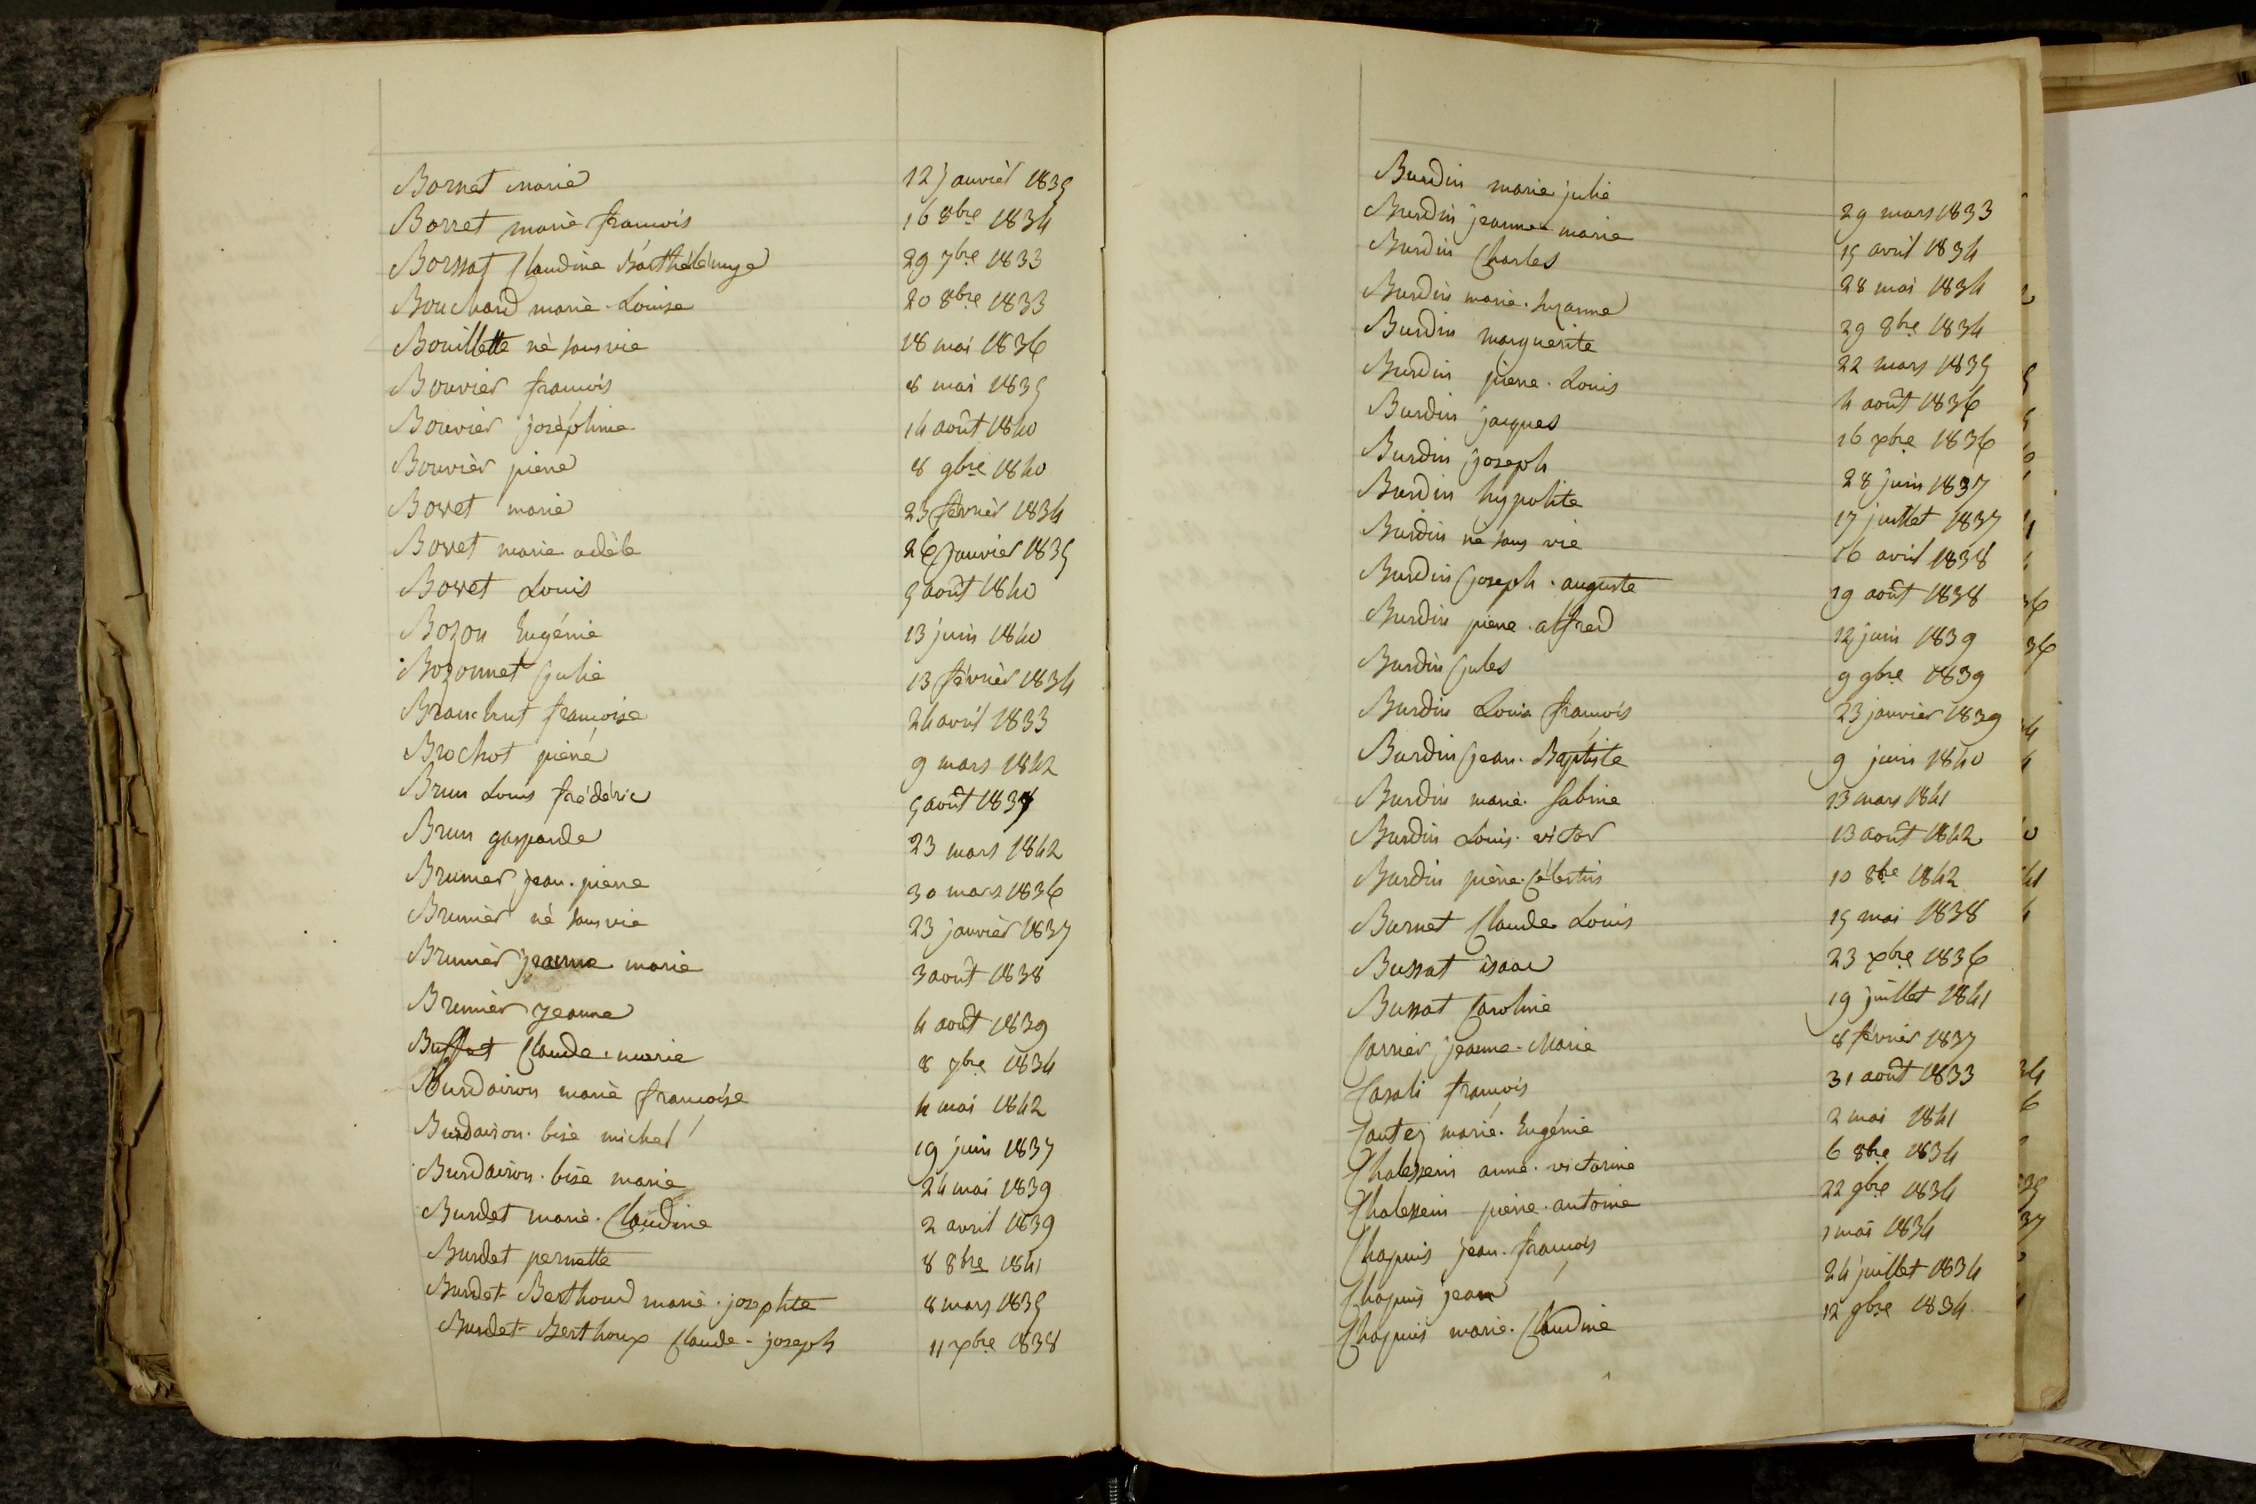 Bornet marie 12 janvièr 1835
Borret mariè francois 16 8bre 1834
Borssat Claudine Barthélémye 29 7bre 1833
Bouchard mariè Louise 20 8bre 1833
Bouillette nè sans vie 18 mai 1836
Bouvier francois 8 mai 1835
Bouvièr joséphine 14 août 1840
Bouvièr pierre 8 9bre 1840
Bovet marie 23 fevrièr 1834
Bovet marie adèle 26 Janvier 1835
Bovet Louis 5 août 1840
Bozon Eugénie 13 juin 1840
Bozonnet Julie 13 févrièr 1834
Branchut francoise 24 avril 1833
Brochot pierre 9 mars 1842
Brun Louis frédéric 5 août 1837
Brun gasparde 23 mars 1842
Brunier jean. pierre 30 mars 1836
Brunièr nè sans vie 23 janvièr 1837
Brunièr jeanne marie 3 août 1838
Brunièr jeanne 4 août 1839
Buffet Claude. marie 8 7bre 1834
Burdairon mariè francoise 4 mai 1842
Burdairon. bise michel 19 juin 1837
Burdairon. bise marie 24 mai 1839
Burdet mariè. Claudine 2 avril 1839
Burdet pernette 8 8bre 1841
Burdet- Berthoud mariè. josephte 8 mars 1835
Burdet- Berthoux Claude- joseph 11 xbre 1838
Burdin marie julie 29 mars 1833
Burdin jeanne marie 15 avril 1834
Burdin Charles 28 mai 1834
Burdin marie. suzanne 29 8bre 1834
Burdin marguerite 22 mars 1835
Burdin pierre. Louis 4 août 1836
Burdin jacques 16 xbre 1836
Burdin joseph 28 juin 1837
Burdin hypolite 17 juillet 1837
Burdin né sans vie 16 avril 1838
Burdin joseph. auguste 19 août 1838
Burdin pierre. alfred 12 juin 1839
Burdin jules 9 9bre 1839
Burdin Louis francois 23 janvier 1839
Burdin jean. Baptiste 9 juin 1840
Burdin marie. Sabine 13 mars 1841
Burdin Louis. victor 13 août 1842
Burdin pièrre. Célestin 10 8bre 1842
Burnet Claude Louis 15 mai 1838
Bussat isaac 23 xbre 1836
Bussat Caroline 19 juillet 1841
Carrier jeanne- Marie 8 février 1837
Casali francois 31 août 1833
marié. Eugénie 2 mai 1841
Chalessein anne. victorine 6 8bre 1834
Chalessein pierre. antoine 22 9bre 1834
Chapuis jean. francois 1 mai 1834
Chapuis jean 24 juillet 1834
Chapuis marie. Claudine 12 9bre 1834